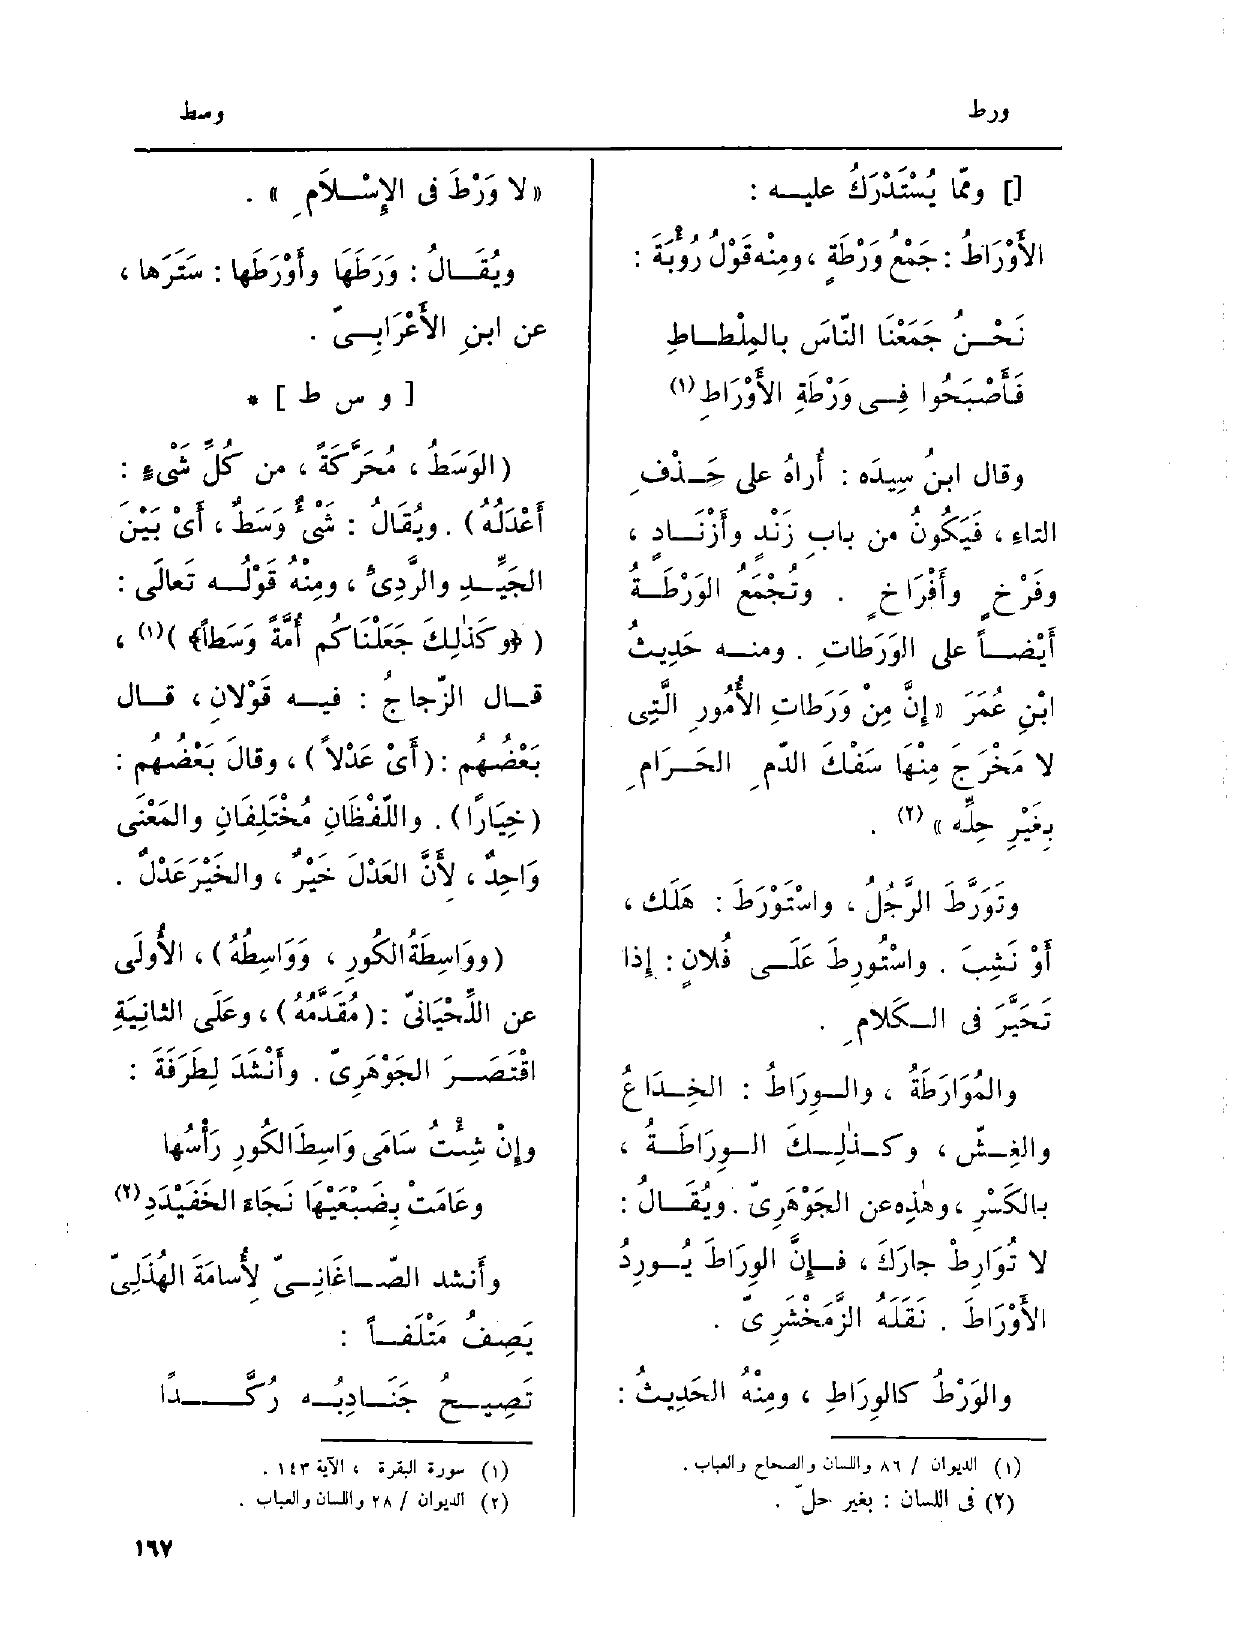 ورط
وسط
[] وممّا يُسْتَدْرَكُ عليـــه :
الأَوْرَاطُ : جَمْعُ وَرْطَةٍ ، ومِنْه قَوْلُ رُؤْبَةَ :
نَحْــنُ جَمَعْنَا النّاسَ بالمِلْطــاطِ
فَأَصْبَحُوا فِــى وَرْطَةِ الأَوْرَاطِ (١)
وقال ابنُ سِيدَه : أُراهُ على حَــذْفِ
التاءِ ، فَيَكُونُ من بابِ زَنْدٍ وأَزْنَــادٍ ،
وفَرْخٍ وأَفْرَاخٍ . وتُجْمَعُ الوَرْطَــةُ
أَيْضــاً على الوَرَطات . ومنــه حَدِيثُ
ابْنِ عُمَرَ « إِنَّ مِنْ وَرَطاتِ الأُمُورِ الَّتِى
لا مَخْرَجَ مِنْهَا سَفْكَ الدّمِ الحَــرَامِ
بِغَيْرِ حِلِّه » (٢) .
وتَوَرَّطَ الرَّجُلُ ، واسْتَوْرَطَ : هَلَكَ ،
أَوْ نَشِبَ . واسْتُورِطَ عَلَــى فُلانٍ : إِذا
تَحَيَّرَ فى الــكَلامِ .
والمُوَارَطَةُ ، والــوِرَاطُ : الخِــدَاعُ
والغِــشّ ، وكــذٰلِــكَ الــوِرَاطَــةُ ،
بالكَسْرِ ، وهٰذِه عن الجَوْهَرِىّ . ويُقَــالُ :
لا تُوَارِطْ جارَكَ ، فــإِنَّ الوِرَاطَ يُــورِدُ
الأَوْرَاطَ . نَقَلَهُ الزَّمَخْشَرِىّ .
والوَرْطُ كالوِرَاطِ ، ومِنْهُ الحَدِيثُ :
(١) الديوان / ٨٦ واللسان والصحاح والعباب .
(٢) فى اللسان : بغير حلّ .
« لا وَرْطَ فى الإِسْــلَامِ » .
ويُقَــالُ : وَرَطَهَا وأَوْرَطَها : سَتَرَها ،
عن ابنِ الأَعْرَابِــىّ .
[ و س ط ] *
(الوَسَطُ ، مُحَرَّكَةً ، من كُلِّ شَىْءٍ :
أَعْدَلُهُ) . ويُقَالُ : شَىْءٌ وَسَطٌ ، أَىْ بَيْنَ
الجَيِّــدِ والرَّدِىْءِ ، ومِنْهُ قَوْلُــه تَعالَى :
( ﴿وكَذٰلِكَ جَعَلْنَاكم أُمَّةً وَسَطاً﴾ )(١) ،
قــال الزّجاجُ : فيــه قَوْلان ، قــال
بَعْضُهُم : (أَىْ عَدْلاً) ، وقالَ بَعْضُهُم :
(خِيَارًا) . واللَّفْظَانِ مُخْتَلِفَانِ والمَعْنَى
وَاحِدٌ ، لأَنَّ العَدْلَ خَيْرٌ ، والخَيْرَ عَدْلٌ .
(ووَاسِطَةُ الكُورِ ، وَوَاسِطُهُ) ، الأُولَى
عن اللِّحْيَانىّ : (مُقَدَّمُهُ) ، وعَلَى الثانِيَةِ
اقْتَصَــرَ الجَوْهَرِىّ . وأَنْشَدَ لِطَرَفَةَ :
وإِنْ شِئْتُ سَامَى وَاسِطَ الكُورِ رَأْسُها
وعَامَتْ بِضَبْعَيْهَا نَجَاءَ الخَفَيْدَدِ (٢)
وأَنشد الصّــاغَانِــىّ لأُسامَةَ الهُذَلِىّ
يَصِفُ مَتْلَفــاً :
تَصِيــحُ جَنَــادِبُــه رُكَّــــدًا
(١) سورة البقرة ، الآية ١٤٣ .
(٢) الديوان / ٢٨ واللسان والعباب .
١٦٧